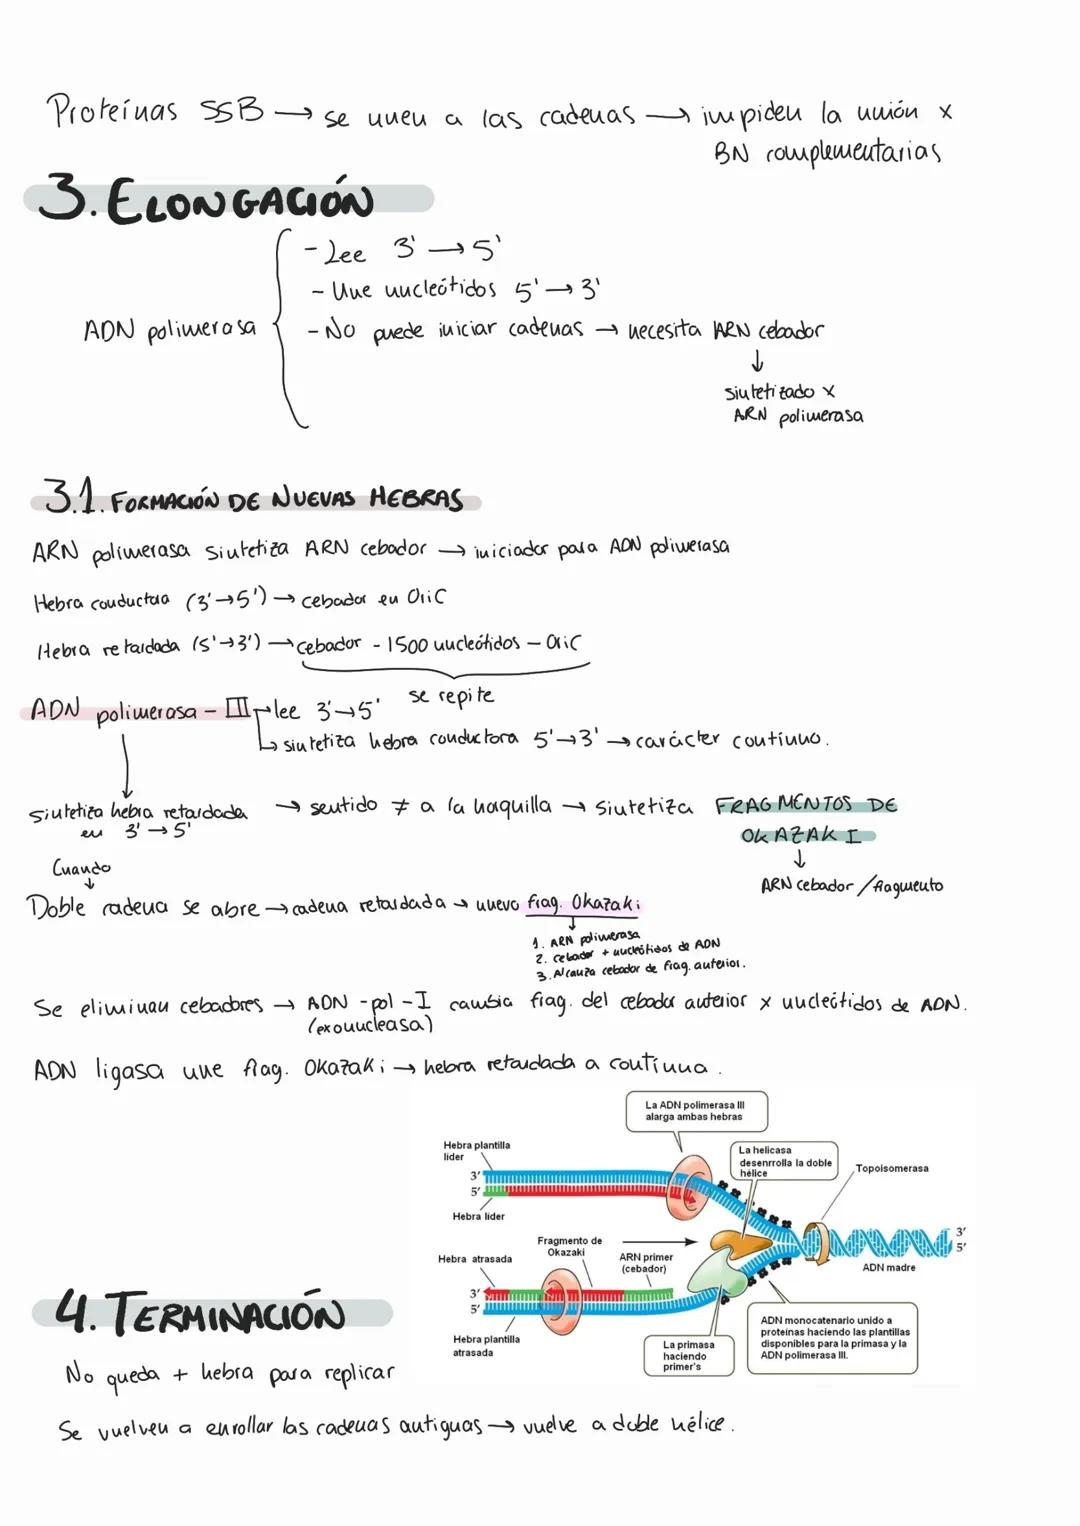 Proteínas SSB → se unen a las cadenas → impiden la unión x
BN complementarias
3. ELONGACIÓN
- Lee 3' → 5'
- Une nucleótidos 5' → 3'
ADN polimerasa - No puede iniciar cadenas → necesita ARN cebador
↓
sintetizado x
ARN polimerasa
3.1. FORMACIÓN DE NUEVAS HEBRAS
ARN polimerasa sintetiza ARN cebador → iniciador para ADN polimerasa
Hebra conductora (3'→5') → cebador en OriC
Hebra retardada (5'→3') → cebador - 1500 nucleótidos - OriC
se repite
ADN polimerasa - III → lee 3'→5'
↳ sintetiza hebra conductora 5'→3' → carácter contínuo.
sintetiza hebra retardada → sentido ≠ a la horquilla → sintetiza FRAGMENTOS DE
en 3' → 5' OKAZAKI
↓
Cuando ARN cebador / fragmento
↓
Doble cadena se abre → cadena retardada → nuevo frag. Okazaki
↓
1. ARN polimerasa
2. cebador + nucleótidos de ADN
3. Alcanza cebador de frag. anterior.
Se eliminan cebadores → ADN - pol - I cambia frag. del cebador anterior x nucleótidos de ADN.
(exonucleasa)
ADN ligasa une frag. Okazaki → hebra retardada a contínua.
La ADN polimerasa III
alarga ambas hebras
Hebra plantilla
lider
La helicasa
desenrrolla la doble
hélice
Topoisomerasa
3'
5'
Hebra lider
3'
5'
Fragmento de
Okazaki
Hebra atrasada
ARN primer
(cebador)
ADN madre
3'
5'
Hebra plantilla
atrasada
La primasa
haciendo
primer's
ADN monocatenario unido a
proteinas haciendo las plantillas
disponibles para la primasa y la
ADN polimerasa III.
4. TERMINACIÓN
No queda + hebra para replicar
Se vuelven a enrollar las cadenas antiguas → vuelve a doble hélice.